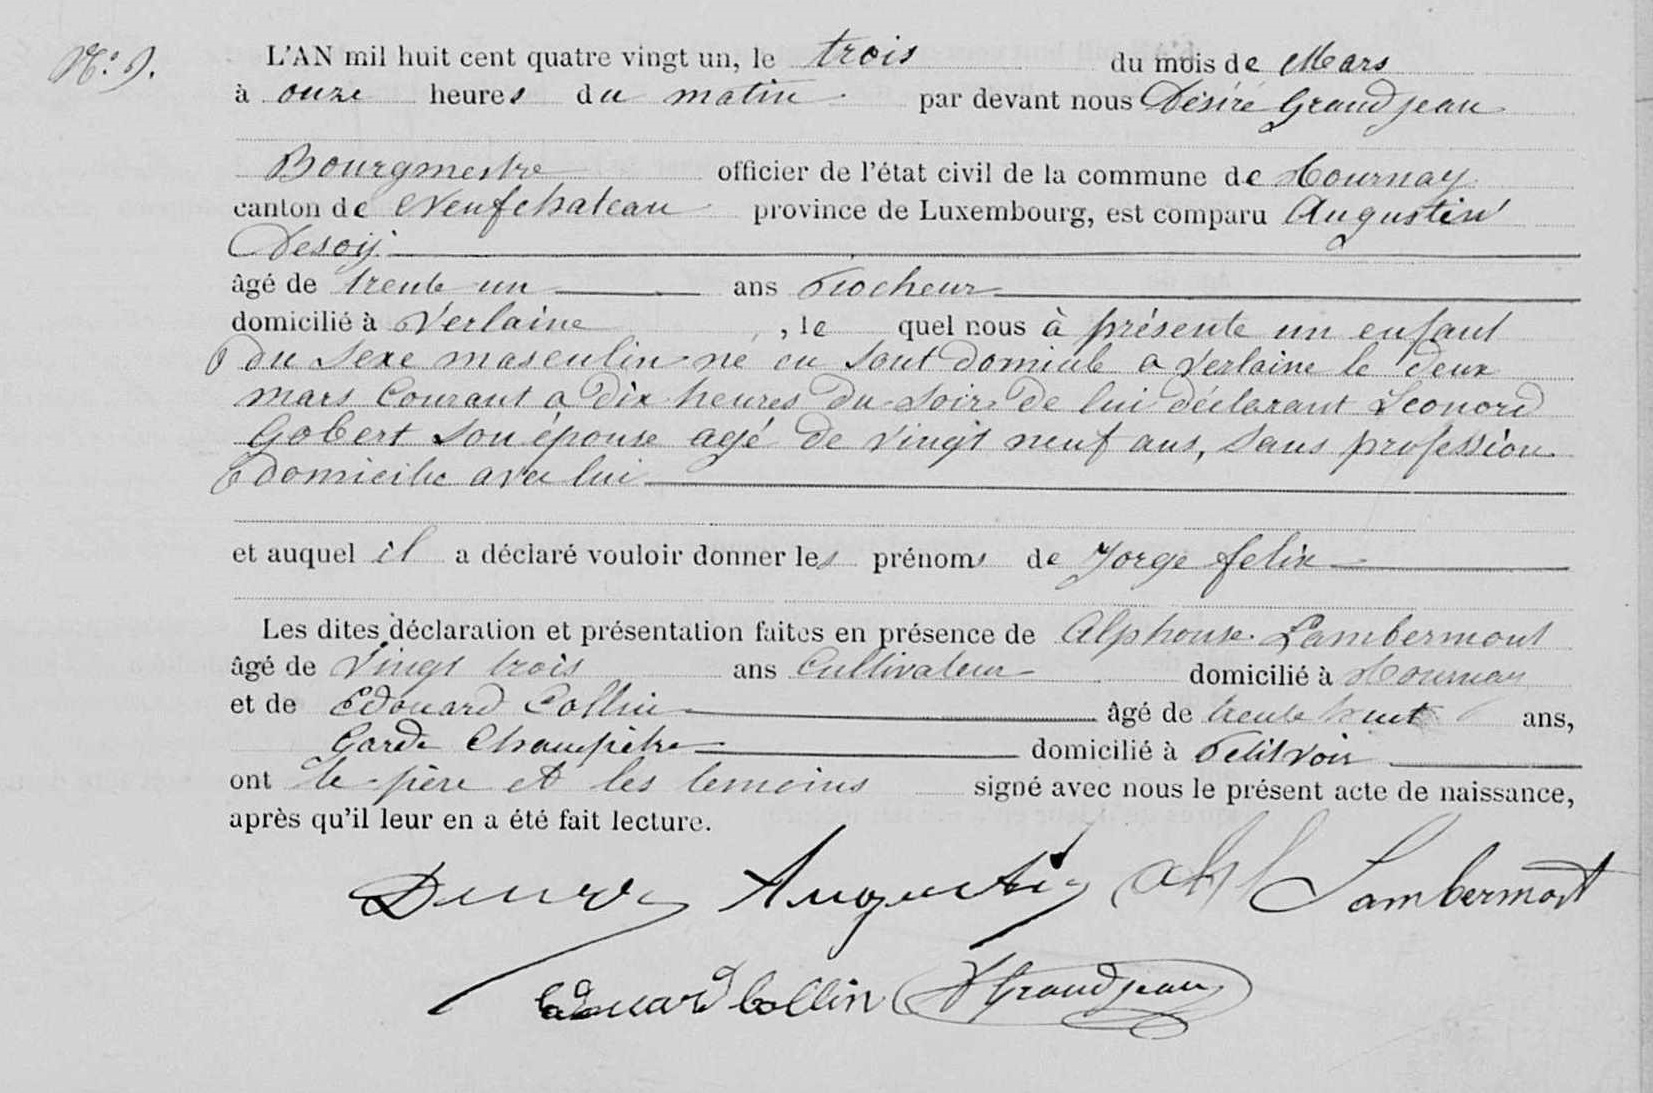 N° 9.
L'AN mil huit cent quatre vingt un, le trois du mois de Mars
à onze heures du matin par devant nous Désiré Grandjean
Bourgmestre officier de l'état civil de la commune de Tournay
canton de Neufchateau province de Luxembourg, est comparu Augustin
Desoÿ
âgé de trente un ans Piocheur
domicilié à Verlaine, le quel nous à présente un enfant
du sexe masculin né en sont domicile a Verlaine le deux
mars Courant a Dix heures du soir de lui déclarant Leonord
Gobert son épouse agé de vingt neuf ans, sans profession
domicilie avec lui
et auquel il a déclaré vouloir donner les prénoms de Jorge felix
Les dites déclaration et présentation faites en présence de Alphonse Lambermont
âgé de Vingt trois ans Cultivateur domicilié à Tournay
et de Edouard Collin âgé de trente huit ans,
Garde Champêtre domicilié à Petitvoir
ont le père et les temoins signé avec nous le présent acte de naissance,
après qu'il leur en a été fait lecture.
Augustin Lambermont
Edouard Collin D Grandjean